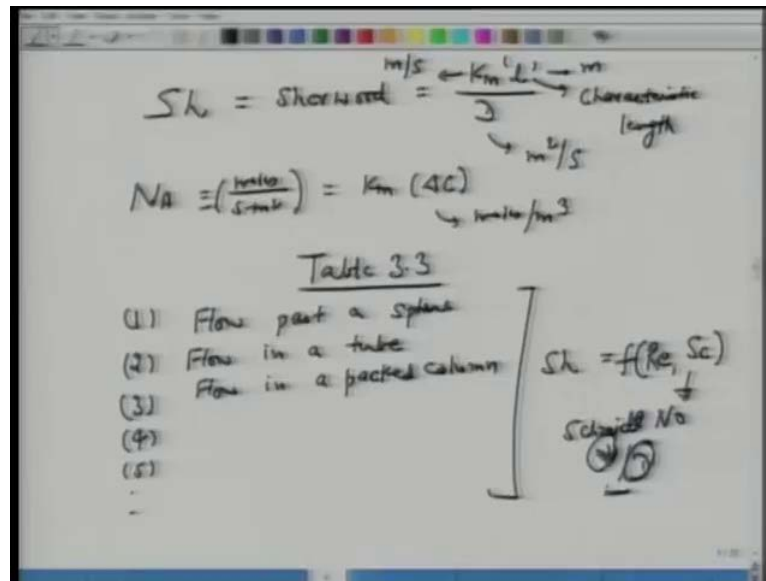 Sh = Sherwood = Km' L' / D
m/s
m
Characteristic length
m²/s
NA ≡ (moles / s·m²) = Km (ΔC)
moles/m³
Table 3.3
(1) Flow past a sphere
(2) Flow in a tube
(3) Flow in a packed column
(4)
(5)
Sh = f(Re, Sc)
Schmidt No